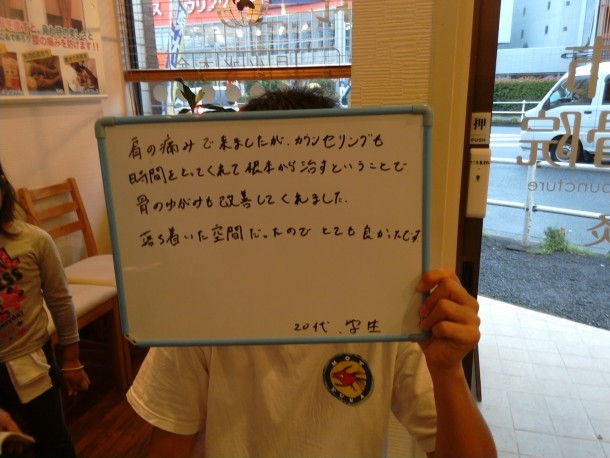 肩の痛みで来ましたが、カウンセリングも
時間をとってくれて根本から治すということで
骨のゆがみも改善してくれました。
落ち着いた空間だったので とても良かったです
20代、学生
押
骨院
puncture
灸